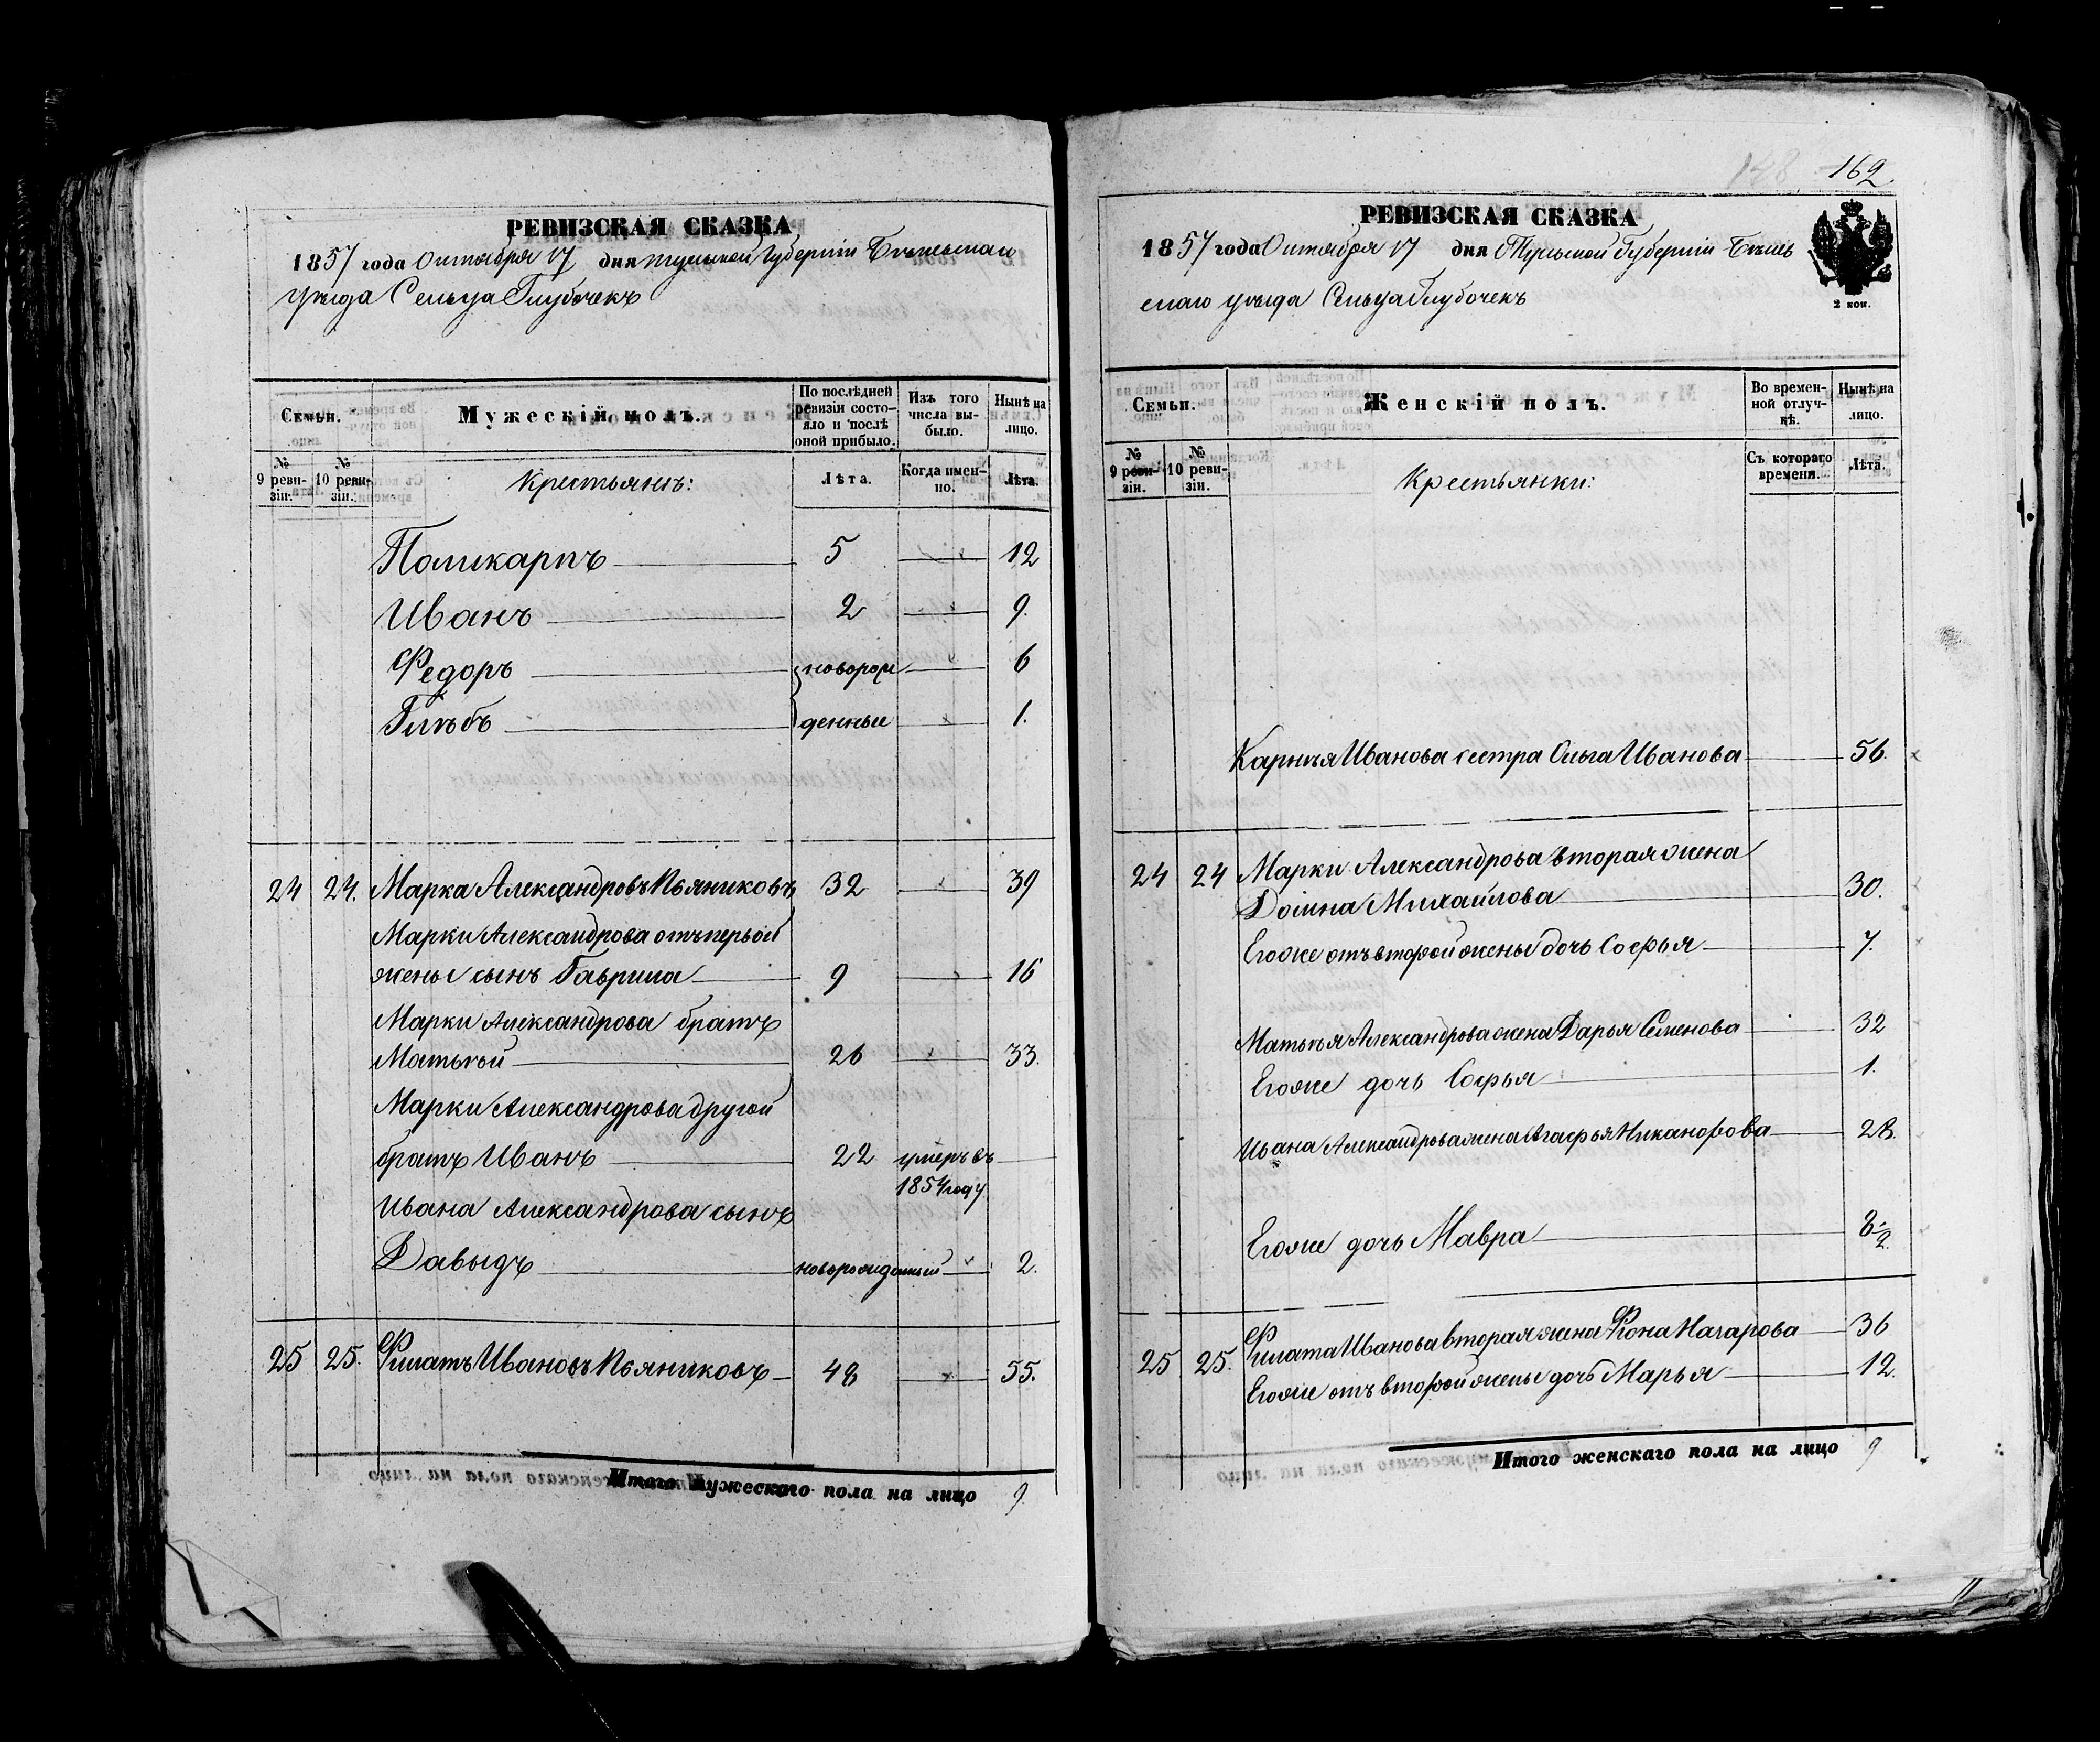 162
РЕВИЗСКАЯ СКАЗКА
1857 года Октября 17 дня Тульской Губерніи Бѣлевскаго
уѣзда Сельца Глубочекъ
Семьи.
Мужескій полъ.
По послѣдней ревизіи состояло и послѣ оной прибыло.
Изъ того числа выбыло.
Нынѣ на лицо.
№ 9 ревизіи.
№ 10 ревизіи.
Крестьянъ:
Лѣта.
Когда именно.
Лѣта.
Поликарпъ 5 12
Иванъ 2 9.
Федоръ новорож 6
Глѣбъ денные 1.
24 24. Марка Александровъ Пьяниковъ 32 39
Марки Александрова отъ первой
жены сынъ Гаврила 9 16
Марки Александрова братъ
Матвѣй 26 33.
Марки Александрова другой
братъ Иванъ 22 умеръ въ
1854 году
Ивана Александрова сынъ
Давыдъ новорожденный 2.
25 25. Филатъ Ивановъ Пьяниковъ 48 55.
Итого мужескаго пола на лицо 9.
РЕВИЗСКАЯ СКАЗКА
1857 года Октября 17 дня Тульской Губерніи Бѣлев
скаго уѣзда Сельца Глубочекъ
2 коп.
Семьи.
Женскій полъ.
Во временной отлучкѣ.
Нынѣ на лицо.
№ 9 ревизіи.
№ 10 ревизіи.
Крестьянки:
Съ котораго времени.
Лѣта.
Карнѣя Иванова сестра Ольга Иванова 56.
24 24 Марки Александрова вторая жена
Домна Михайлова 30.
Егоже отъ второй жены дочь Софья 7.
Матвѣя Александрова жена Дарья Семенова 32
Егоже дочь Софья 1.
Ивана Александрова жена Агафья Никанорова 28.
Егоже дочь Мавра
25 25. Филата Иванова вторая жена Фіона Назарова 36
Егоже отъ второй жены дочь Марья 12.
Итого женскаго пола на лицо 9